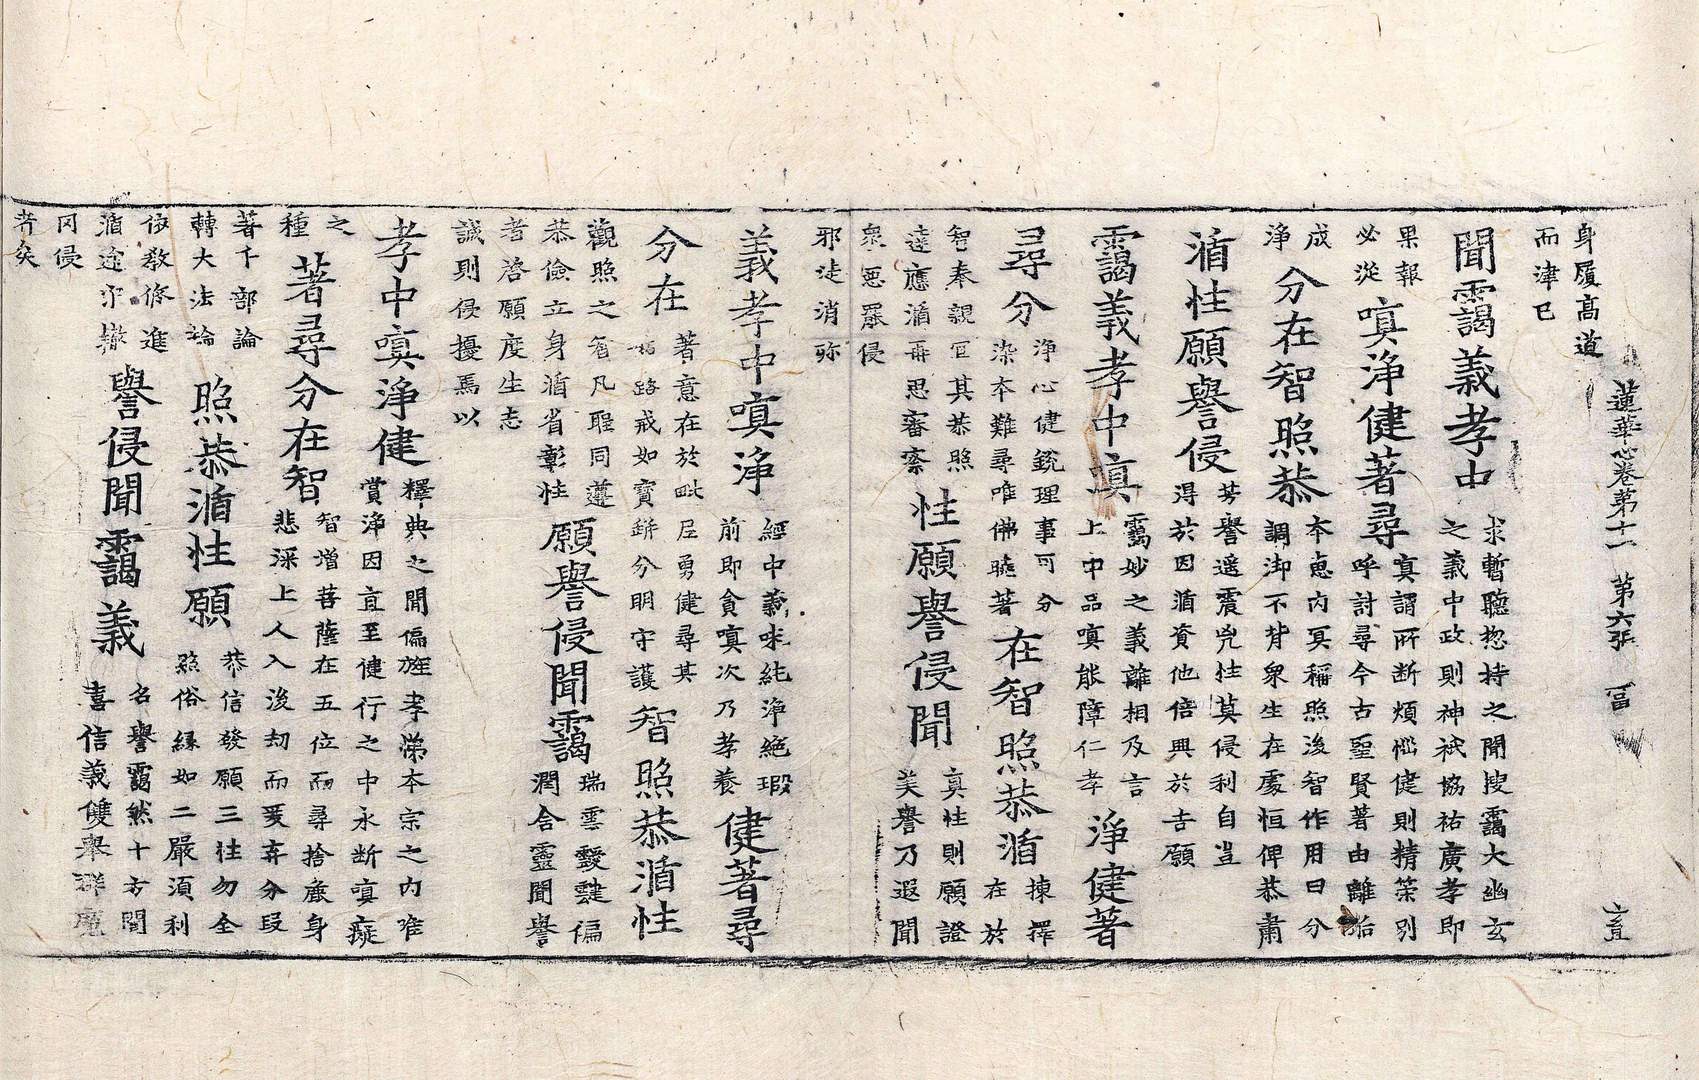 蓮華心卷第十一 第六張 冨
身履高道
而津已
聞靄義孝中
求暫聽惚持之聞搜靄大幽玄
之義中政則神祇協祐廣孝即
果報
必從
嗔淨健著尋
真謂所斷煩惱健則精策别
呼討尋今古聖賢著由離始
成
淨
分在智照恭
本惠内冥稱照後智作用曰分
調御不背衆生在處恒俾恭肅
循性願譽侵
芳譽遥震兇性莫侵利自豈
得於因循資他倍興於吉願
靄義孝中嗔
靄妙之義離相及言
上中品嗔能障仁孝
淨健著
尋分
淨心健銳理事可分
染本難尋唯佛曉著
在智照恭循
揀擇
在於
智奉親宜其恭照
逹應循再思審察
性願譽侵聞
真性則願證
美譽乃遐聞
衆惡罷侵
邪徒消弥
義孝中嗔淨
經中義味純淨絶瑕
前即貪嗔次乃孝養
健著尋
分在
著意在於毗尼勇健尋其
路戒如寶缾分明守護
智照恭循性
觀照之智凡聖同遵
恭儉立身循省彰性
願譽侵聞靄
瑞雲靉靆徧
潤含靈聞譽
者啓願度生志
誠則侵擾焉以
孝中嗔淨健
釋典之聞偏旌孝悌本宗之内唯
賞淨因直至健行之中永斷嗔癡
之
種
著尋分在智
智增菩薩在五位而尋捨麁身
悲深上人入後刧而叐弃分段
著千部論
轉大法輪
照恭循性願
恭信發願三徃勿全
照俗縁如二嚴須利
依教修進
循途守轍
譽侵聞靄義
名譽靄然十方聞
喜信義雙舉群魔
罔侵
者矣